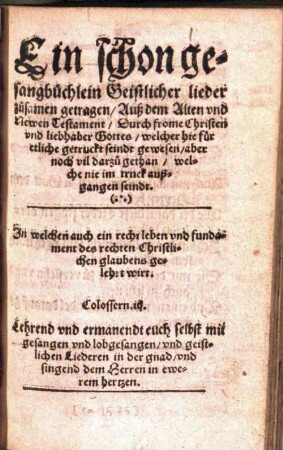 Ein schon ge-
sangbüchlein Geistlicher lieder
zůsamen getragen / Auß dem Alten vnd
Newen Testament / Durch frome Christen
vnd liebhaber Gottes / welcher hie für
etliche getruckt seindt gewesen / aber
noch vil darzů gethan / wel-
che nie im truck auß-
gangen seindt.
(∴)
In welchen auch ein recht leben vnd funda-
ment des rechten Christli-
chen glaubens ge-
lehrt wirt.
Colossern. iij.
Lehrend vnd ermanendt euch selbst mit
gesangen vnd lobgesangen / vnd geist-
lichen Liederen in der gnad / vnd
singend dem Herren in ewe-
rem hertzen.